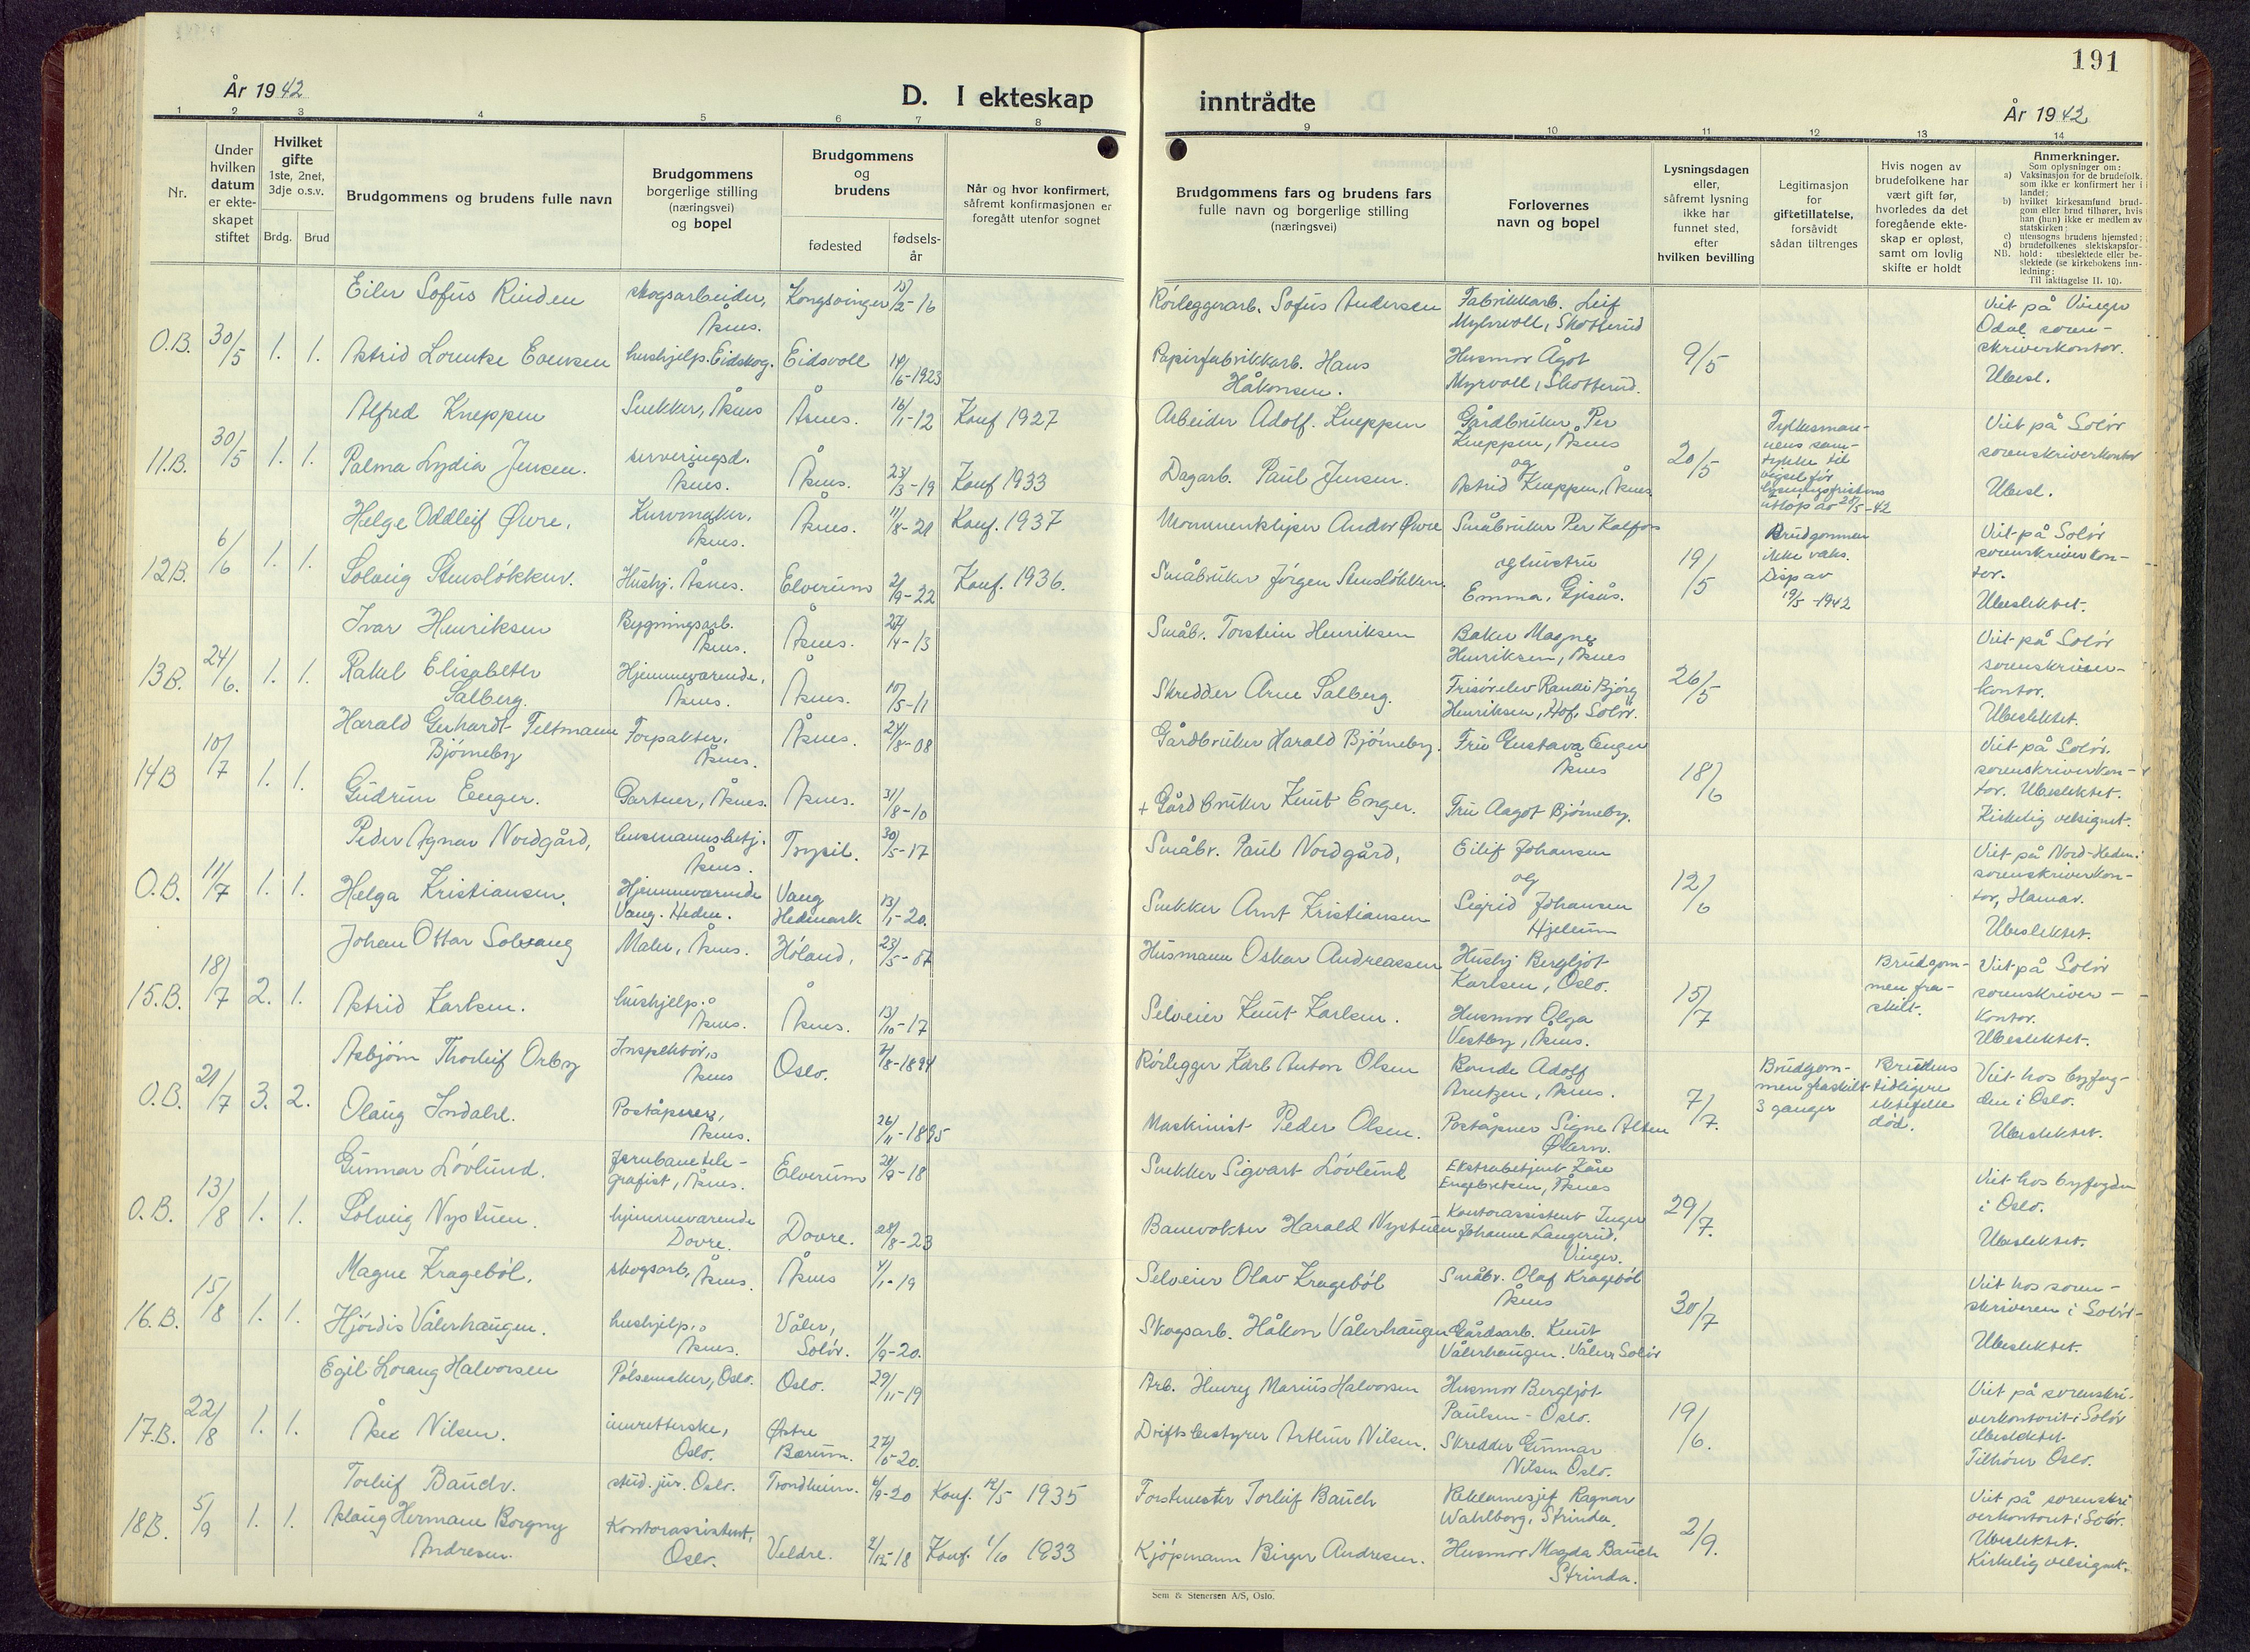 191
År 1942
D. I ekteskap
inntrådte
År 1942
1 2 3 4 5 6 7 8
9 10 11 12 13 14
Nr.
Under hvilken datum er ekteskapet stiftet
Hvilket gifte 1ste, 2net, 3dje o.s.v.
Brdg. Brud
Brudgommens og brudens fulle navn
Brudgommens borgerlige stilling (næringsvei) og bopel
Brudgommens og brudens
fødested
fødsels-år
Når og hvor konfirmert, såfremt konfirmasjonen er foregått utenfor sognet
Brudgommens fars og brudens fars fulle navn og borgerlige stilling (næringsvei)
Forlovernes navn og bopel
Lysningsdagen eller, såfremt lysning ikke har funnet sted, efter hvilken bevilling
Legitimasjon for giftetillatelse, forsåvidt sådan tiltrenges
Hvis nogen av brudefolkene har vært gift før, hvorledes da det foregående ekteskap er opløst, samt om lovlig skifte er holdt
Anmerkninger.
Som oplysninger om:
a) Vaksinasjon for de brudefolk, som ikke er konfirmert her i landet;
b) hvilket kirkesamfund brudgom eller brud tilhører, hvis han (hun) ikke er medlem av statskirken;
c) utensogns brudens hjemsted;
d) brudefolkenes slektskapsforhold:
NB. ubeslektede eller beslektede (se kirkebokens innledning:
Til iakttagelse II. 10).
Eiler Sofus Rinden skogsarbeider, Åsnes. Kongsvinger 15/2-16
O.B. 30/5 1. 1. Astrid hushjelp. Eidskog. Eidsvoll 14/6-1923
Rörleggerarb. Sofus Andersen Fabrikkarb. Leif Myhrvoll, Skotterud
Papirfabrikkarb. Hans Håkonsen. Husmor Ågot Myrvoll, Skotterud. 9/5
Viet på Vinger Odal sorenskriverkontor. Ubesl.
Alfred Kneppen Snekker, Åsnes Åsnes. 16/1-12 Konf 1927
11.B. 30/5 1. 1. Palma Lydia Jensen. serveringsd. Åsnes. Åsnes. 23/3-19 Konf 1933
Arbeider Adolf. Kneppen Gårdbruker Per Kneppen, Åsnes
Dagarb. Paul Jensen. og Astrid Kneppen, Åsnes. 20/5
Fylkesmannens samtykke til vigsel før lysningsfristens utløp av 28/5-42
Viet på Solør sorenskriverkontor Ubesl.
Helge Oddleif Øvre, Kurvmaker, Åsnes. Åsnes. 11/8-21 Konf. 1937
12B. 6/6 1. 1. Solveig Stensløkken. Hushj. Åsnes. Elverum 2/9-22 Konf. 1936.
Andor Øvre Småbruker Per Kalfos
Småbruker Jørgen Stensløkken. og hustru Emma, Gjesås. 19/5
Brudgommen ikke vaks. Disp av 19/5-1942
Viet på Solør sorenskriverkontor. Ubeslektet.
Ivar Henriksen Bygningsarb. Åsnes. Åsnes. 27/4-13
13B. 24/6. 1. 1. Rakel Elisabeth Salberg. Hjemmeværende, Åsnes. Åsnes. 10/5-11
Småbr. Torstein Henriksen Baker Magne Henriksen, Åsnes
Skredder Arne Salberg. Frisörelev Randi Bjørg Henriksen, Hof, Solør. 26/5
Viet på Solør sorenskriverkontor. Ubeslektet.
Harald Gerhardt Feltmann Bjørneby Forpakter, Åsnes. Åsnes. 24/8-08
14B 10/7 1. 1. Gudrun Enger. Gartner, Åsnes. Åsnes. 31/8-10
Gårdbruker Harald Bjørneby. Fru Gustava Enger Åsnes
+ Gårdbruker Knut Enger. Fru Aagot Bjørneby. 18/6
Viet på Solør sorenskriverkontor. Ubeslektet. Kirkelig velsignet.
Peder Agnar Nordgård, husmannsbetj. Åsnes. Trysil. 30/5-17
O.B. 11/7 1. 1. Helga Kristiansen. Hjemmeværende Vang. Hedm. Vang Hedmark 13/1-20.
Småbr. Paul Nordgård, Eilif Johansen
Snekker Arnt Kristiansen og Sigrid Johansen Hjellum 12/6
Viet på Nord-Hedm. sorenskriverkontor, Hamar. Ubeslektet.
Johan Ottar Solvang Maler, Åsnes. Høland, 23/5-07
15.B. 18/7 2. 1. Astrid Karlsen. hushjelp. Åsnes. Åsnes. 13/10-17
Husmann Oskar Andreassen Hushj Bergljot Karlsen, Oslo.
Selveier Knut Karlsen. Husmor Olga Vestby, Åsnes. 15/7
Brudgommen fraskilt.
Viet på Solør sorenskriverkontor. Ubeslektet.
Asbjørn Thorleif Orby Inspektör, Åsnes Oslo. 2/8-1894
O.B. 21/7 3. 2. Olaug Indahl. Poståpner, Åsnes. 26/11-1895
Rörlegger Karl Anton Olsen Bonde Adolf Arntzen, Åsnes.
Maskinist Peder Olsen. Poståpner Signe Økern. 7/7.
Brudgommen fraskilt 3 ganger
Brudens tidligere ektefelle død.
Viet hos byfogden i Oslo. Ubeslektet.
Gunnar Lövlund. Jernbanetelegrafist, Åsnes. Elverum 28/9-18
O.B. 13/8 1. 1. Solveig Nystuen. hjemmeværende Dovre. Dovre. 28/8-23
Snekker Sigvart Lövlund Ekstrabetjent Kåre Engebretsen, Åsnes
Banevokter Harald Nystuen Kontorassistent Inger Johanne Langerud, Vinger. 29/7.
Viet hos byfogden i Oslo. Ubeslektet.
Magne Kragebøl, skogsarb, Åsnes. Åsnes 4/1-19
16.B. 15/8 1. 1. Hjördis Vålerhaugen. hushjelp., Åsnes. Våler, Solør. 1/9-20.
Selveier Olav Kragebøl Småbr. Olaf Kragebøl Åsnes
Skogsarb. Håkon Vålerhaugen Gårdsarb. Knut Vålerhaugen. Våler, Solør 30/7
Viet hos sorenskriveren i Solør. Ubeslektet.
Egil Lorang Halvorsen Pølsemaker, Oslo. Oslo. 29/11-19
17.B. 22/8 1. 1. Åse Nilsen. Oslo. Østre Bærum. 27/6-20.
Arb. Henry Marius Halvorsen Husmor Bergljot Paulsen - Oslo.
Driftsbestyrer Arthur Nilsen. Skredder Gunnar Nilsen Oslo. 19/6.
Viet på sorenskriverkontoret i Solør Ubeslektet. Tilhører Oslo.
Torleif Bauch. stud. jur. Oslo. Trondheim. 6/9-20 Konf. 12/5 1935
18B. 5/9 1. 1. Aslaug Hermane Borgny Andresen. Kontorassistent, Oslo. Veldre. 2/12-18 Konf. 1/10 1933
Forstmester Torleif Bauch Reklamesjef Ragnar Wahlborg, Strinda.
Kjøpmann Birger Andresen. Husmor Magda Bauch Strinda. 2/9.
Viet på sorenskriverkontoret i Solør. Ubeslektet. Kirkelig velsignet.
Sem & Stenersen A/S, Oslo.